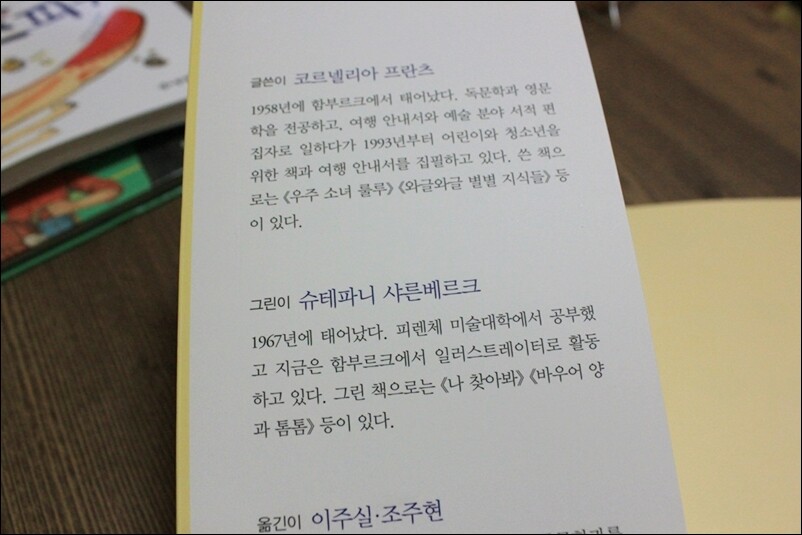 글쓴이 코르넬리아 프란츠
1958년에 함부르크에서 태어났다. 독문학과 영문
학을 전공하고, 여행 안내서와 예술 분야 서적 편
집자로 일하다가 1993년부터 어린이와 청소년을
위한 책과 여행 안내서를 집필하고 있다. 쓴 책으
로는 《우주 소녀 룰루》 《와글와글 별별 지식들》 등
이 있다.
그린이 슈테파니 샤른베르크
1967년에 태어났다. 피렌체 미술대학에서 공부했
고 지금은 함부르크에서 일러스트레이터로 활동
하고 있다. 그린 책으로는 《나 찾아봐》 《바우어 양
과 톰톰》 등이 있다.
옮긴이 이주실·조주현